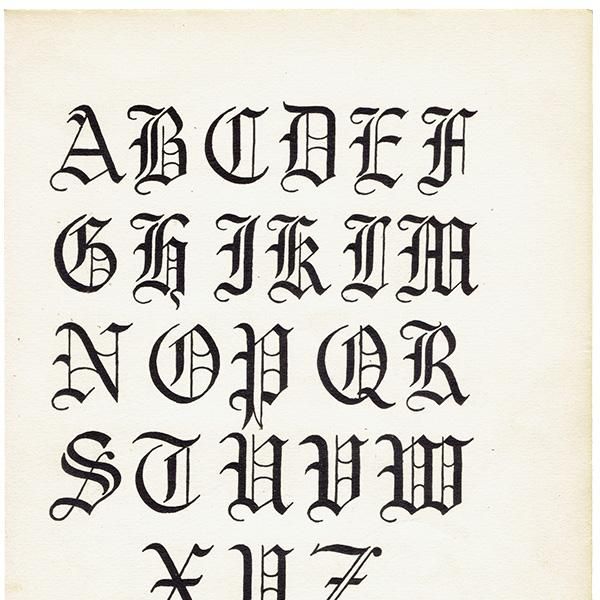 A B C D E F
G H I K L M
N O P Q R
S T U V W
X Y Z